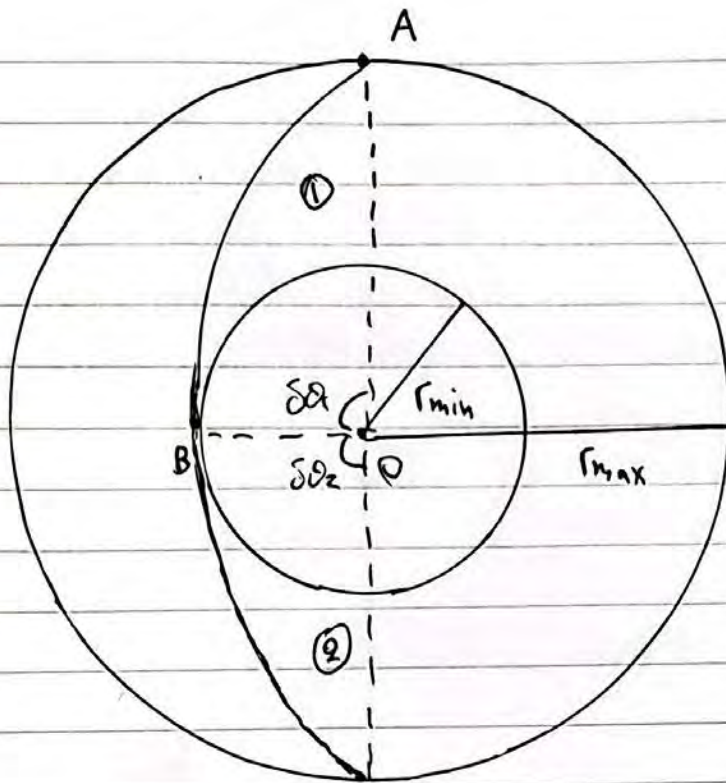 A
①
δθ₁
rmin
B
δθ₂
O
rmax
②